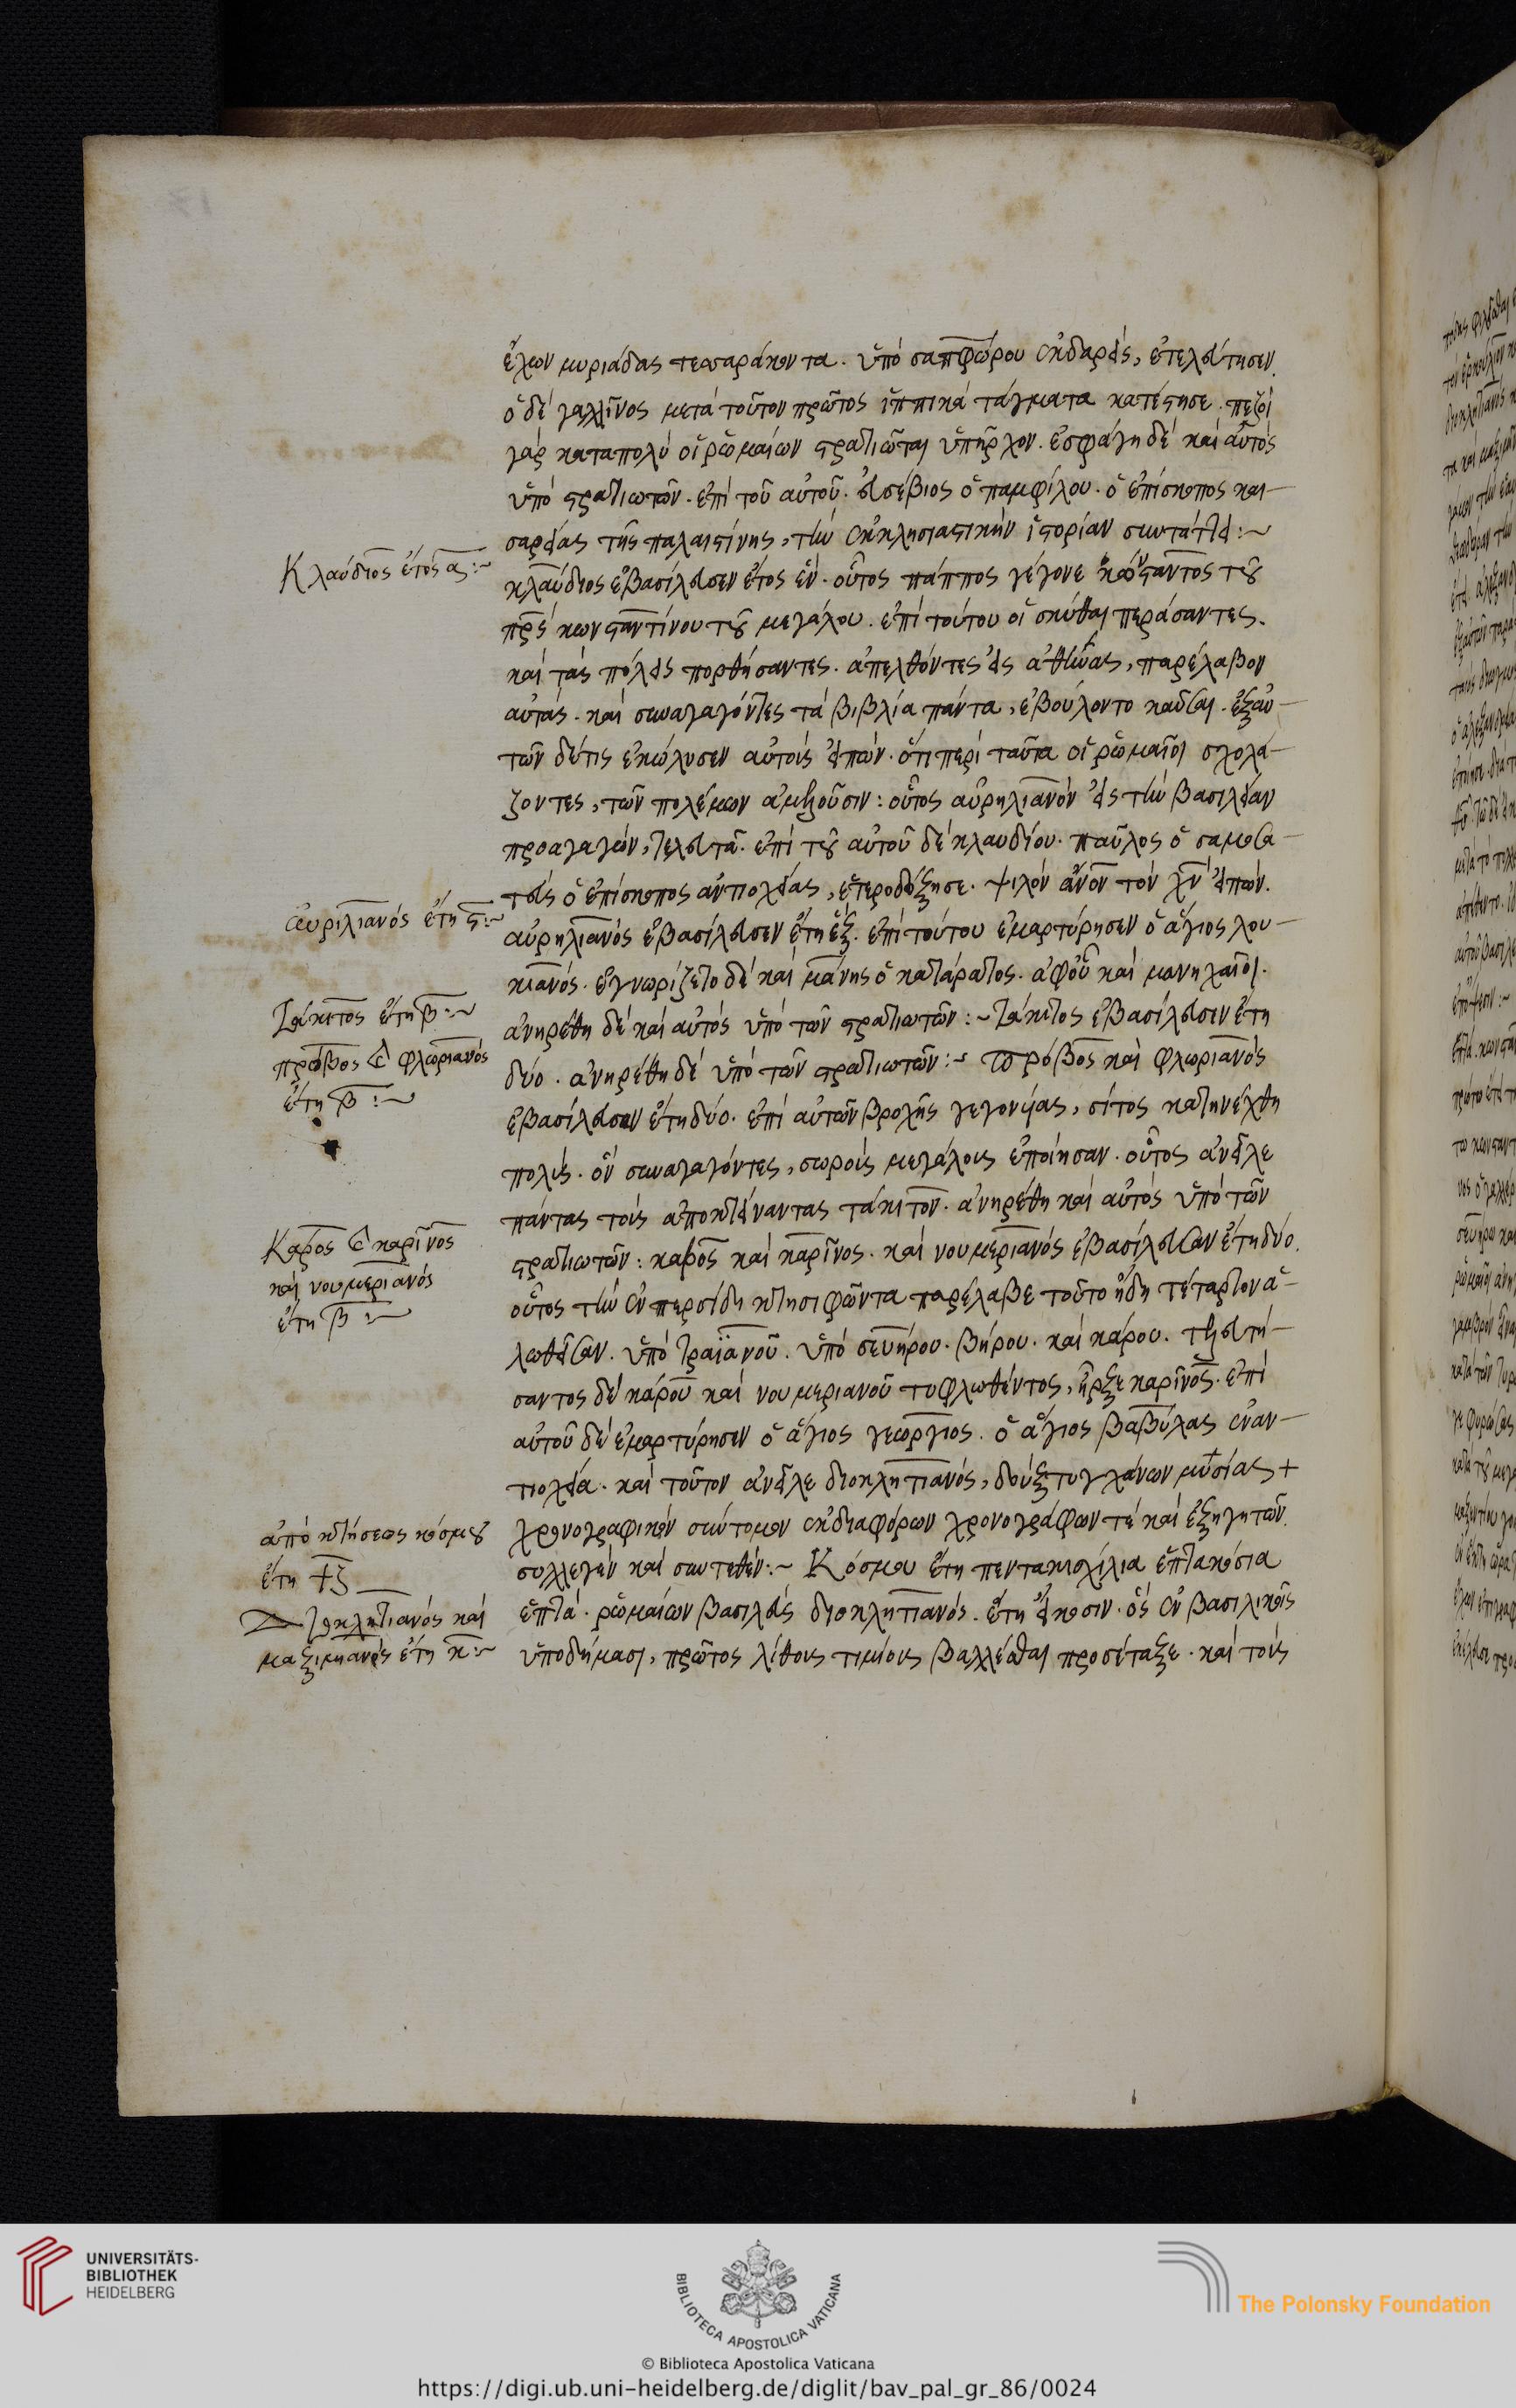 ἔχων μυριάδας τεσσαράκοντα. ὑπὸ σαπφώρου ἐκδαρεὶς, ἐτελεύτησεν.
ὁ δὲ γαλλῖνος μετὰ τοῦτον πρῶτος ἱππικὰ τάγματα κατέστησε. πεζοὶ
γὰρ καταπολὺ οἱ ῥωμαίων στρατιῶται ὑπῆρχον. ἐσφάγη δὲ καὶ αὐτὸς
ὑπὸ στρατιωτῶν. ἐπὶ τοῦ αὐτοῦ. εὐσέβιος ὁ παμφίλου. ὁ ἐπίσκοπος και-
σαρείας τῆς παλαιστίνης, τὴν ἐκκλησιαστικὴν ἱστορίαν συντάττει:~
Κλαύδιος ἔτος α:~
κλαύδιος ἐβασίλευσεν ἔτος ἕν. οὗτος πάππος γέγονε κώνσταντος τοῦ
πρς κωνσταντίνου τοῦ μεγάλου. ἐπὶ τούτου οἱ σκύθαι περάσαντες.
καὶ τὰς πόλεις πορθήσαντες. ἀπελθόντες εἰς ἀθήνας, παρέλαβον
αὐτάς. καὶ συναγαγόντες τὰ βιβλία πάντα, ἐβούλοντο καῦσαι. ἐξ αὐ-
τῶν δέ τις ἐκώλυσεν αὐτοὺς εἰπών. ὅτι περὶ ταῦτα οἱ ῥωμαῖοι σχολά-
ζοντες, τῶν πολέμων ἀμελοῦσιν: οὗτος αὐρηλιανὸν εἰς τὴν βασιλείαν
προαγαγών, τελευτᾶ. ἐπὶ τοῦ αὐτοῦ δὲ κλαυδίου. παῦλος ὁ σαμοσα-
τεὺς ὁ ἐπίσκοπος ἀντιοχείας, ἑτεροδόξησε. ψιλὸν ἄνον τὸν χν εἰπών.
Αυριλιανός ἔτη ϛ:~
αὐρηλιανὸς ἐβασίλευσεν ἔτη ἕξ. ἐπὶ τούτου ἐμαρτύρησεν ὁ ἅγιος λου-
κιανός. ἐγνωρίζετο δὲ καὶ μάνης ὁ κατάρατος. ἀφ' οὗ καὶ μανηχαῖοι.
Τάκιτος ἔτη β:~
ἀνηρέθη δὲ καὶ αὐτὸς ὑπὸ τῶν στρατιωτῶν:~ τάκιτος ἐβασίλευσεν ἔτη
πρόβος καὶ φλωριανός
ἔτη β:~
δύο. ἀνηρέθη δὲ ὑπὸ τῶν στρατιωτῶν:~ πρόβος καὶ φλωριανὸς
ἐβασίλευσαν ἔτη δύο. ἐπὶ αὐτῶν βροχῆς γεγονυίας, σίτος κατηνέχθη
πολύς. ὃν συναγαγόντες, σωροὺς μεγάλους ἐποίησαν. οὗτος ἀνεῖλε
πάντας τοὺς ἀποκτείναντας τάκιτον. ἀνηρέθη καὶ αὐτὸς ὑπὸ τῶν
Κάρος καὶ καρῖνος
καὶ νουμεριανός
ἔτη β:~
στρατιωτῶν: κάρος καὶ καρῖνος. καὶ νουμεριανὸς ἐβασίλευσαν ἔτη δύο.
οὗτος τὴν ἐν περσίδη κτησιφῶντα παρέλαβε τοῦτο ἤδη τέταρτον ἁ-
λωθεῖσαν. ὑπὸ τραϊανοῦ. ὑπὸ σευήρου. βήρου. καὶ κάρου. τελευτή-
σαντος δὲ κάρου καὶ νουμεριανοῦ τυφλωθέντος, ἦρξε καρῖνος. ἐπὶ
αὐτοῦ δὲ ἐμαρτύρησεν ὁ ἅγιος γεώργιος. ὁ ἅγιος βαβύλας ἐν ἀν-
τιοχεία. καὶ τοῦτον ἀνεῖλε διοκλητιανός, δοὺξ τυγχάνων μυσίας +
ἀπὸ κτήσεως κόσμου
ἔτη
χρονογραφικὸν σύντομον ἐκ διαφόρων χρονογράφων τὲ καὶ ἐξηγητῶν.
συλλεγὲν καὶ συντεθέν:~ Κόσμου ἔτη πεντακισχίλια ἑπτακόσια
Διοκλητιανὸς καὶ
μαξιμιανός ἔτη κ:~
ἑπτά. ῥωμαίων βασιλεὺς διοκλητιανός. ἔτη εἴκοσιν. ὃς ἐν βασιλικοῖς
ὑποδήμασι, πρῶτος λίθους τιμίους βαλλέσθαι προσέταξε. καὶ τοὺς
UNIVERSITÄTS-
BIBLIOTHEK
HEIDELBERG
BIBLIOTECA APOSTOLICA VATICANA
The Polonsky Foundation
© Biblioteca Apostolica Vaticana
https://digi.ub.uni-heidelberg.de/diglit/bav_pal_gr_86/0024